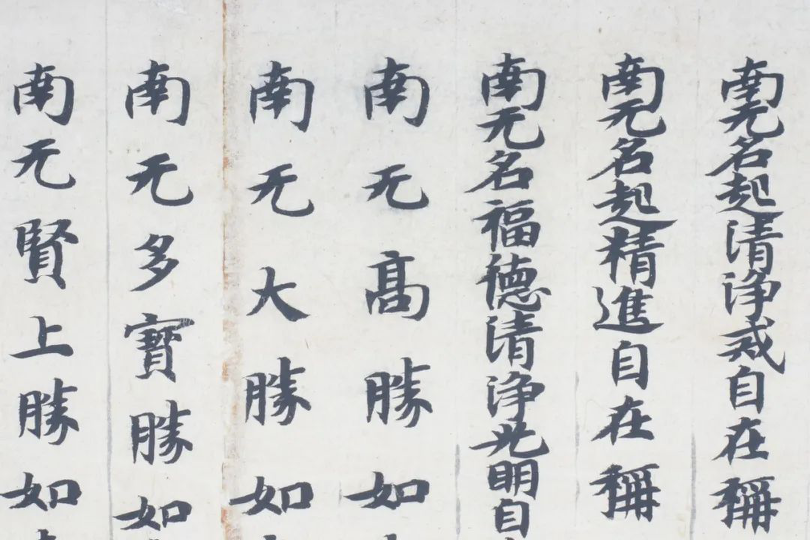 南无名起清浄戒自在稱
南无名起精進自在稱
南无名福德清浄光明自
南无髙勝如
南无大勝如
南无多寳勝如
南无賢上勝如